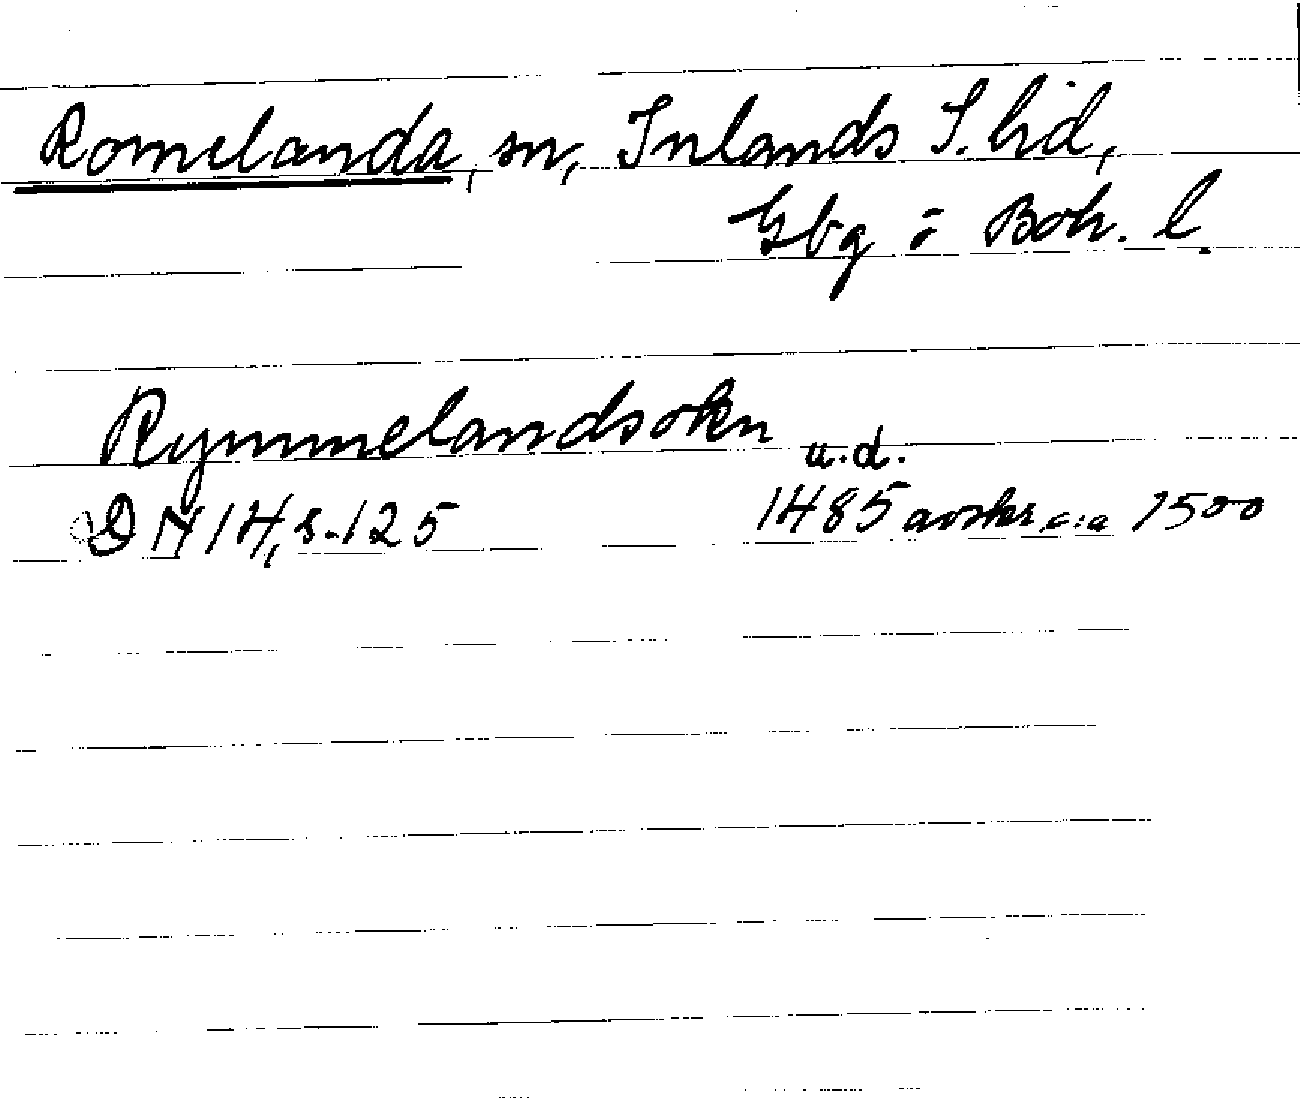 Romelanda, sn, Inlands S. hd,
Gbg o Boh. l.
Rymmelandsokn u.d.
DN 14, s. 125 1485 avskr. c:a 1500